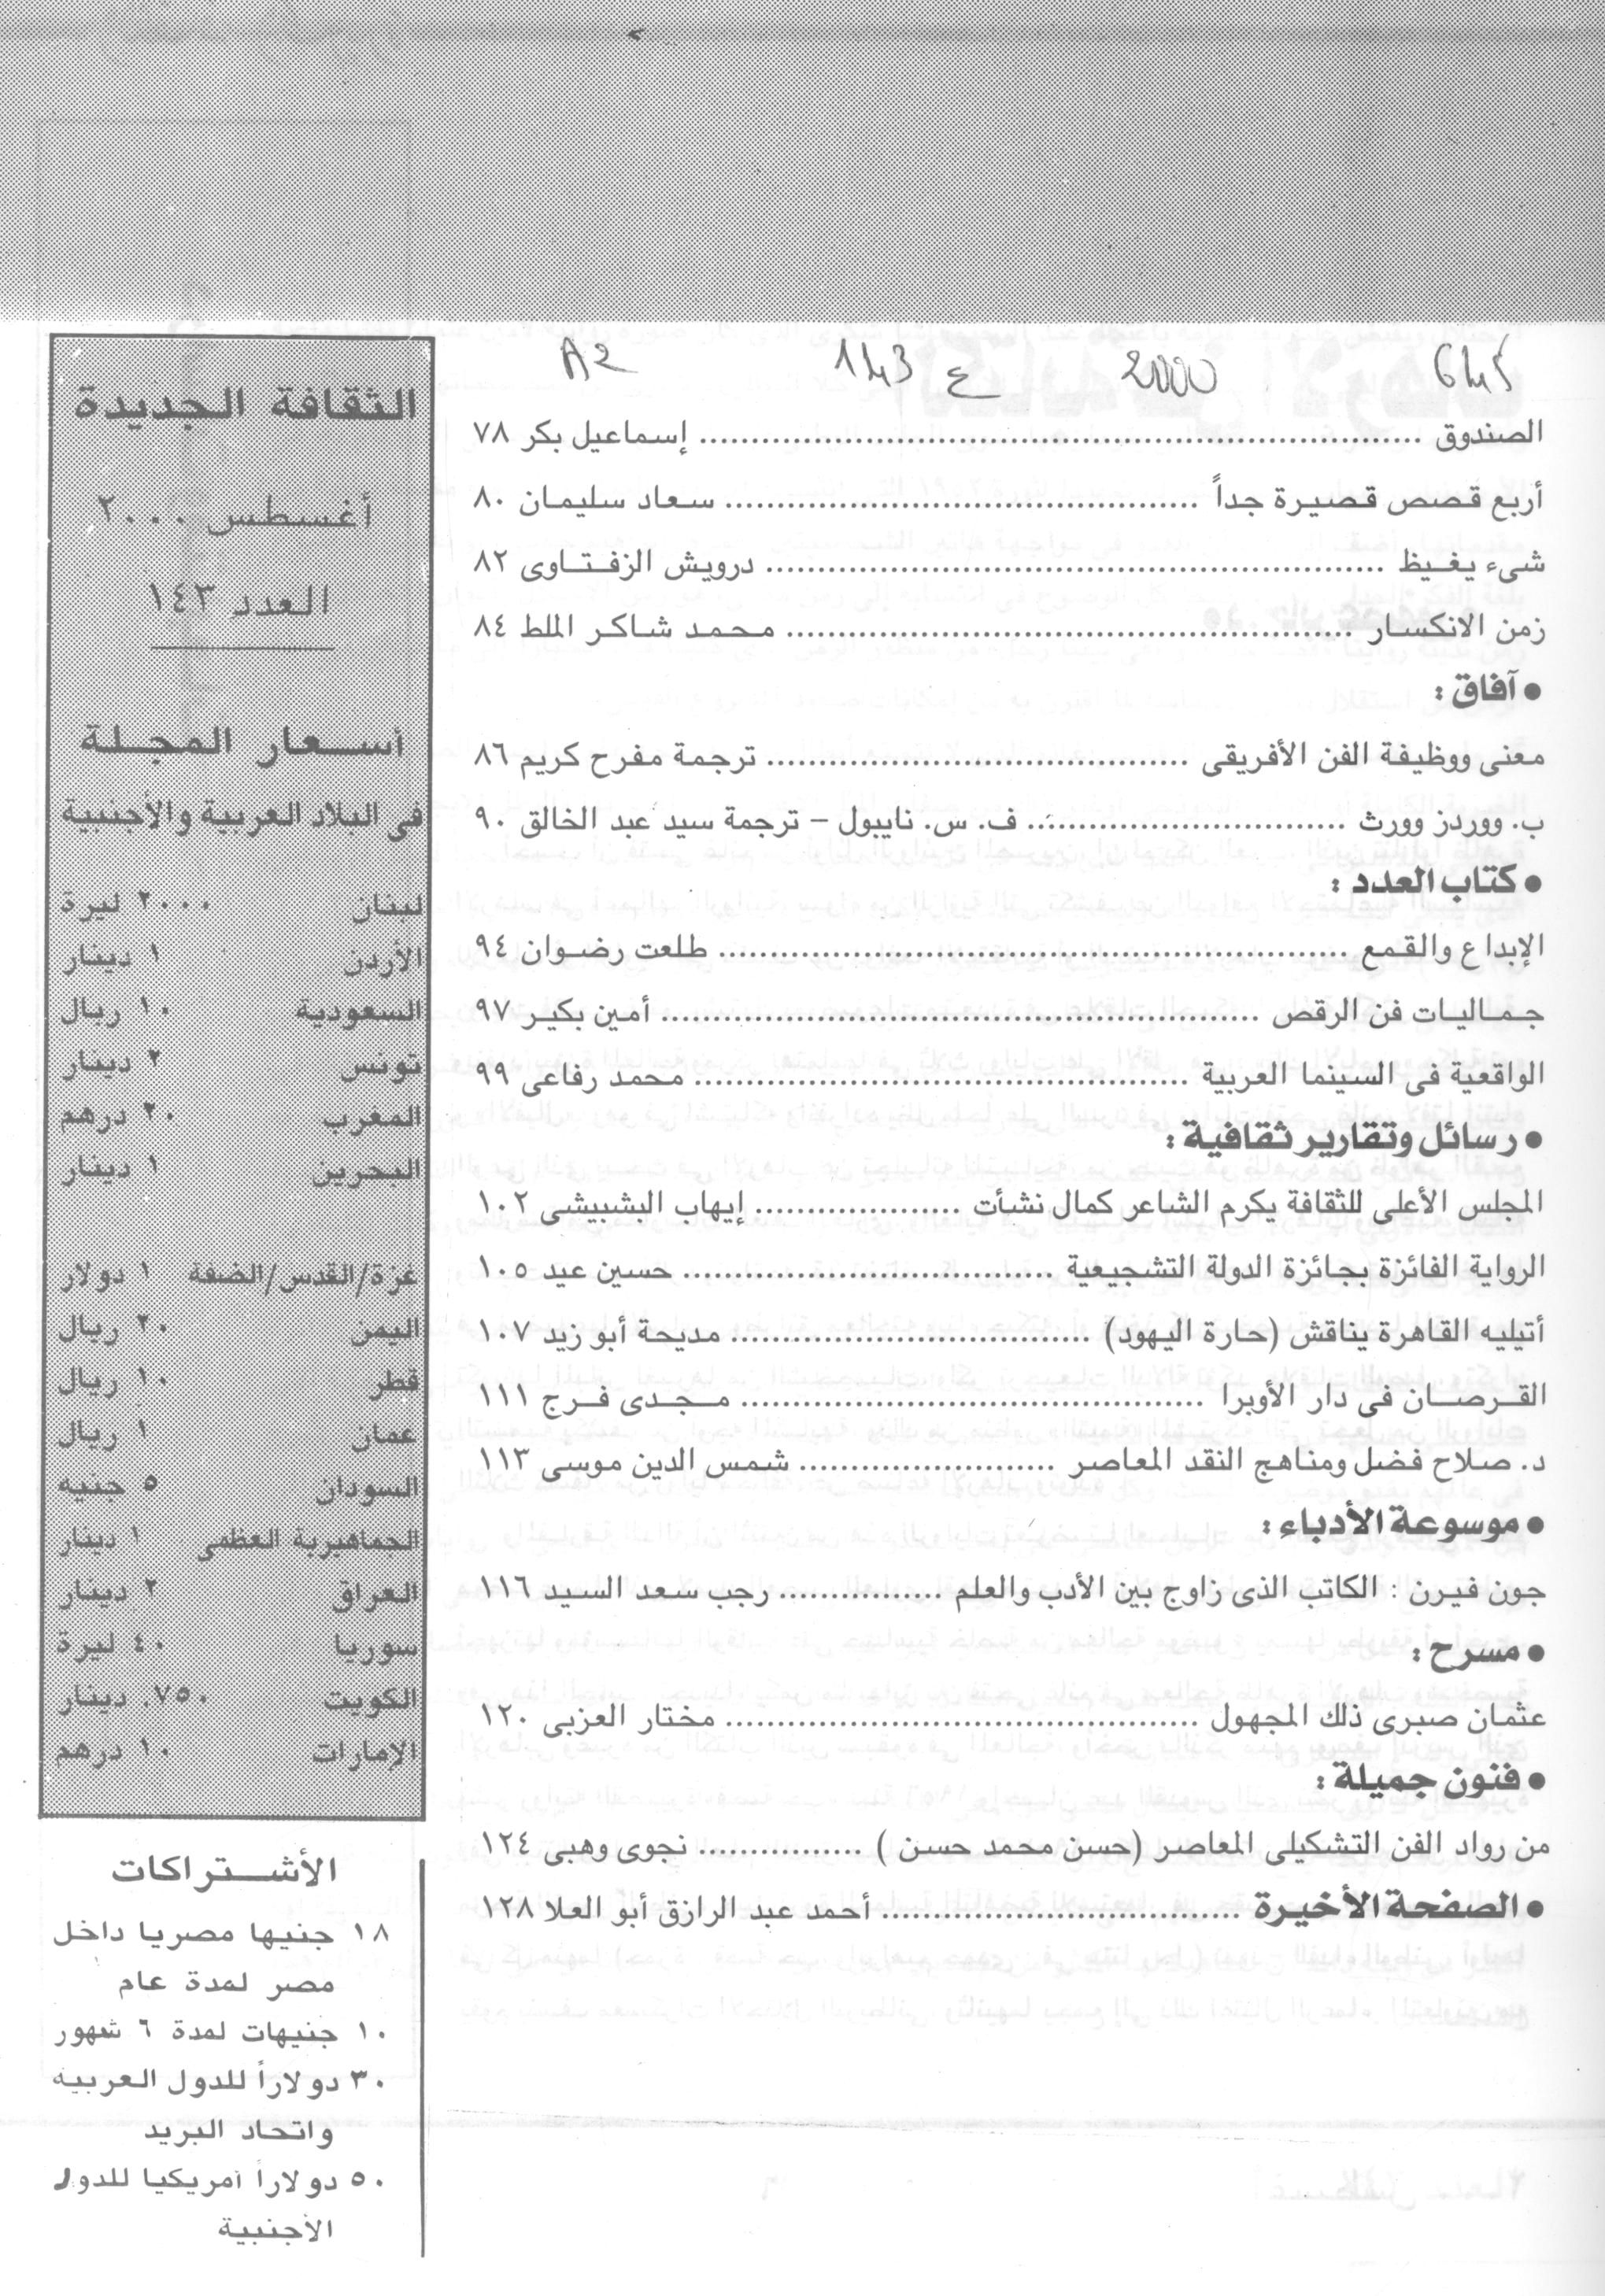 645 2000 ع 143 A2
الصندوق ........ إسماعيل بكر ٧٨
أربع قصص قصيرة جداً ........ سعاد سليمان ٨٠
شىء يغيظ ........ درويش الزفتاوى ٨٢
زمن الانكسار ........ محمد شاكر الملط ٨٤
● آفاق :
معنى ووظيفة الفن الأفريقى ........ ترجمة مفرح كريم ٨٦
ب. ووردز وورث ........ ف. س. نايبول – ترجمة سيد عبد الخالق ٩٠
● كتاب العدد :
الإبداع والقمع ........ طلعت رضوان ٩٤
جماليات فن الرقص ........ أمين بكير ٩٧
الواقعية فى السينما العربية ........ محمد رفاعى ٩٩
● رسائل وتقارير ثقافية :
المجلس الأعلى للثقافة يكرم الشاعر كمال نشأت ........ إيهاب البشبيشى ١٠٢
الرواية الفائزة بجائزة الدولة التشجيعية ........ حسين عيد ١٠٥
أتيليه القاهرة يناقش (حارة اليهود) ........ مديحة أبو زيد ١٠٧
القرصان فى دار الأوبرا ........ مجدى فرج ١١١
د. صلاح فضل ومناهج النقد المعاصر ........ شمس الدين موسى ١١٣
● موسوعة الأدباء :
جون فيرن : الكاتب الذى زاوج بين الأدب والعلم ........ رجب سعد السيد ١١٦
● مسرح :
عثمان صبرى ذلك المجهول ........ مختار العزبى ١٢٠
● فنون جميلة :
من رواد الفن التشكيلى المعاصر (حسن محمد حسن ) ........ نجوى وهبى ١٢٤
● الصفحة الأخيرة ........ أحمد عبد الرازق أبو العلا ١٢٨
الثقافة الجديدة
أغسطس ٢٠٠٠
العدد ١٤٣
أسعار المجلة
فى البلاد العربية والأجنبية
لبنان ٢٠٠٠ ليرة
الأردن ١ دينار
السعودية ١٠ ريال
تونس ٢ دينار
المغرب ٢٠ درهم
البحرين ١ دينار
غزة/القدس/الضفة ١ دولار
اليمن ٢٠ ريال
قطر ١٠ ريال
عمان ١ ريال
السودان ٥ جنيه
الجماهيرية العظمى ١ دينار
العراق ٢ دينار
سوريا ٤٠ ليرة
الكويت ٧٥٠. دينار
الإمارات ١٠ درهم
الأشتراكات
١٨ جنيها مصريا داخل
مصر لمدة عام
١٠ جنيهات لمدة ٦ شهور
٣٠ دولاراً للدول العربيه
واتحاد البريد
٥٠ دولاراً أمريكيا للدول
الأجنبية